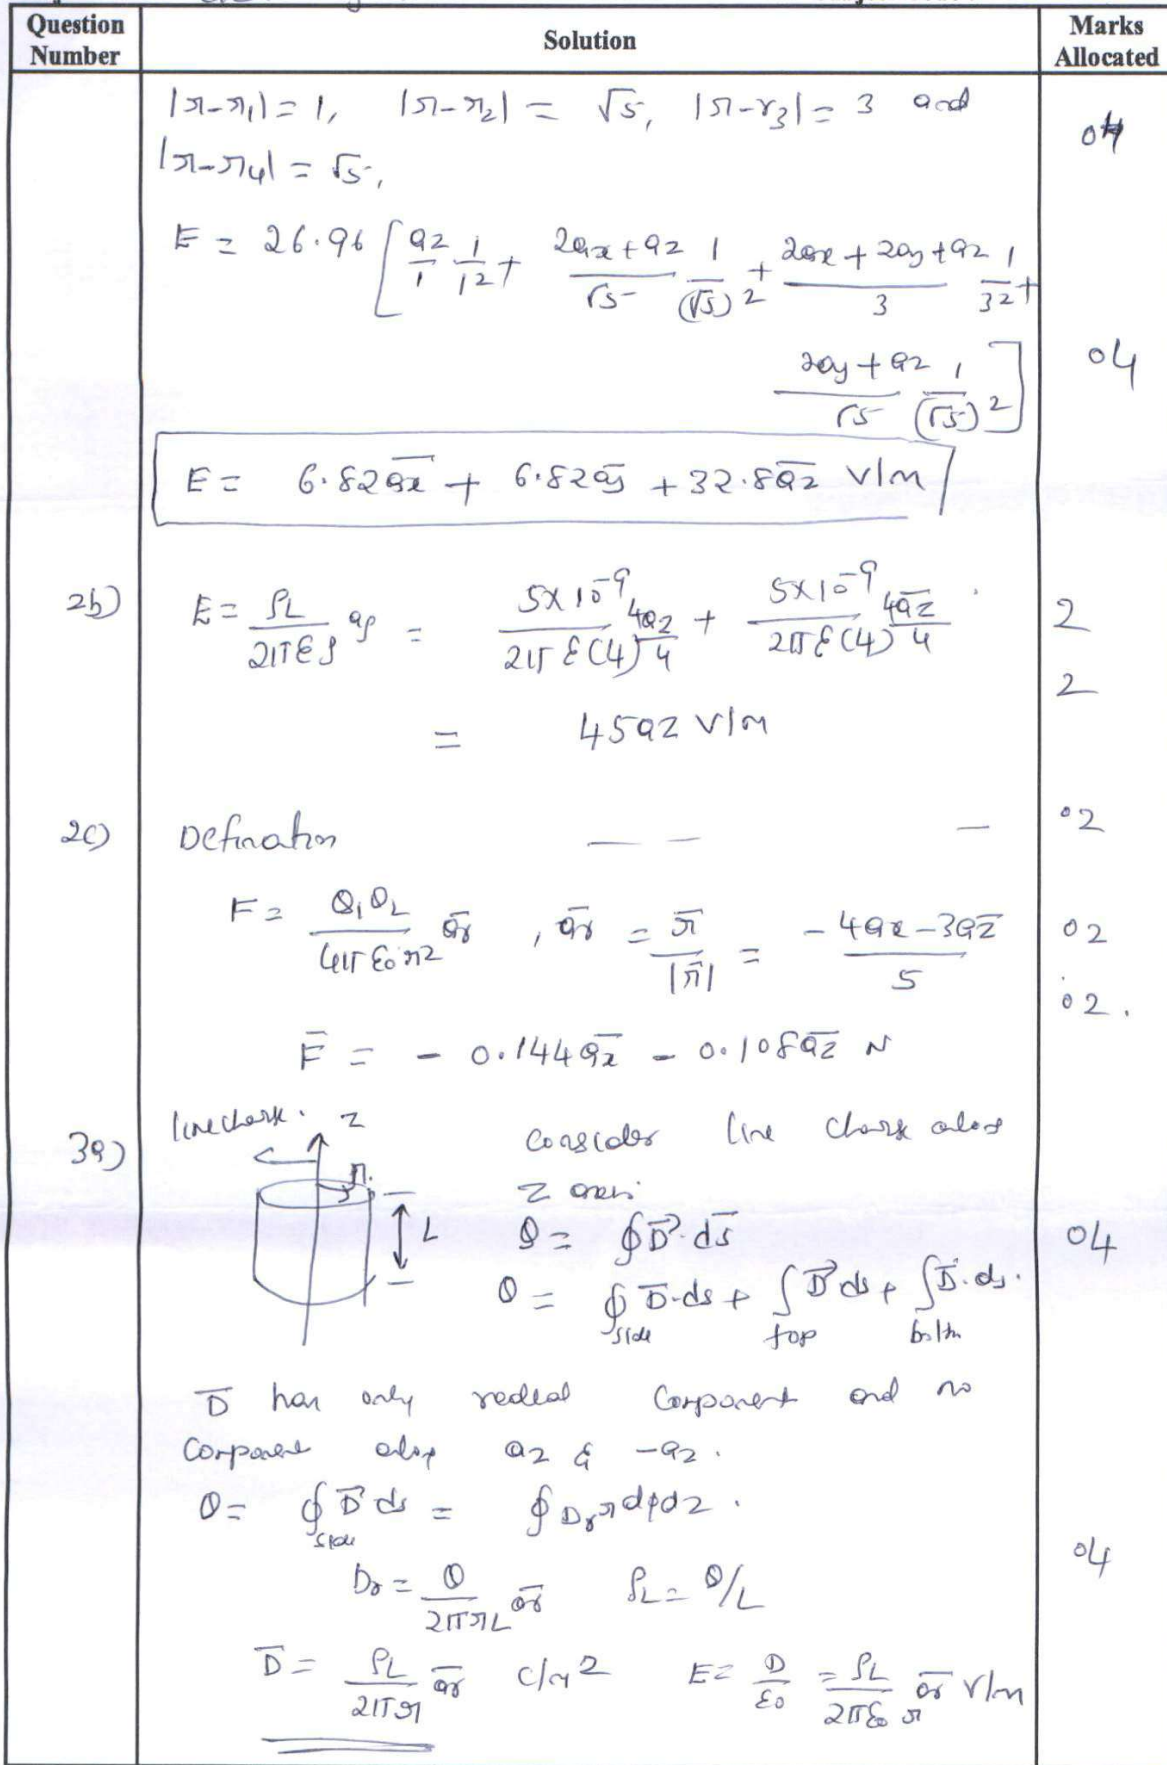 Question Number Solution Marks Allocated
|r-r₁| = 1, |r-r₂| = √5, |r-r₃| = 3 and
|r-r₄| = √5,
04
E = 26.96 [ az/1 1/1² + 2ax+az/√5 1/(√5)² + 2ax+2ay+az/3 1/3² +
2ay+az/√5 1/(√5)² ]
04
E = 6.82 ax + 6.82 ay + 32.8 az V/m
2b) E = ρL/2περ aρ = 5×10⁻⁹/2πε(4) 4az/4 + 5×10⁻⁹/2πε(4) 4az/4 2
2
= 45az V/m
2c) Defination — — — 02
F = Q₁Q₂/4πε₀r² ar , ar = r/|r| = -4ax-3az/5 02
02.
F = - 0.144 ax - 0.108 az N
3a) line charge. z Consider line charge along
r. z axis
L Q = ∮ D·ds 04
Q = ∮side D·ds + ∫top D ds + ∫bottom D·ds.
D has only radial component and no
component along az & -az.
Q = ∮side D ds = ∮ Dr r dφdz.
04
Dr = Q/2πrL ar ρL = Q/L
D = ρL/2πr ar C/m² E = D/ε₀ = ρL/2πε₀ r ar V/m